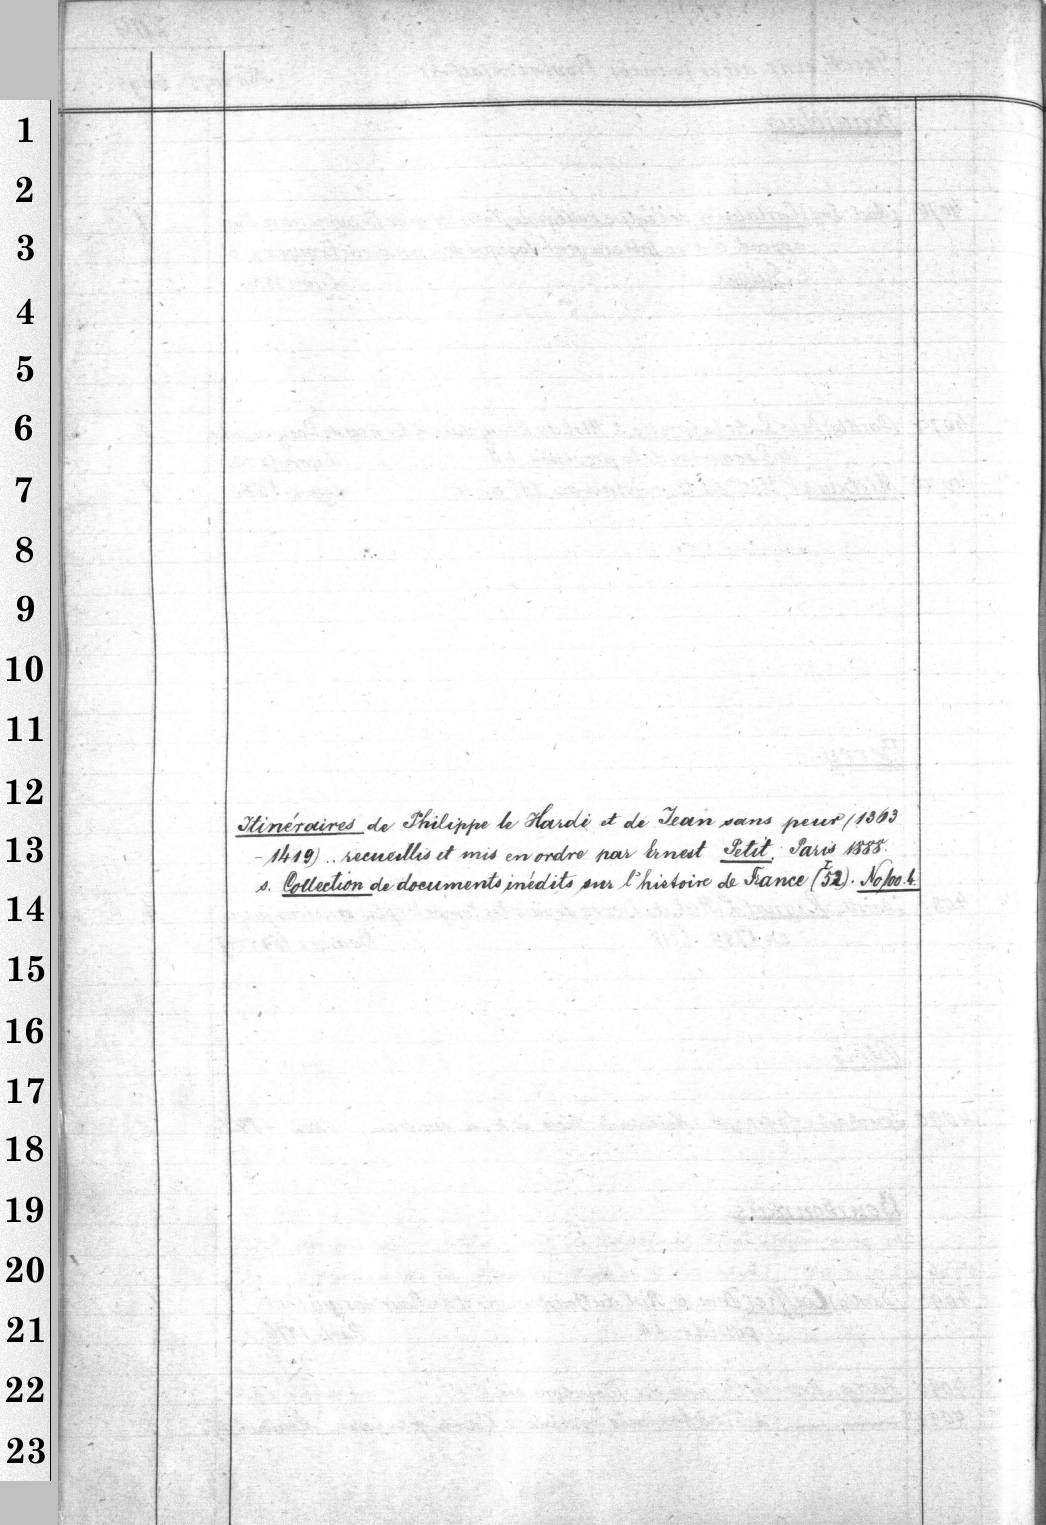 1
2
3
4
5
6
7
8
9
10
11
12
Itinéraires de Philippe le Hardi et de Jean sans peur (1363
13
-1419) .. recueillis et mis en ordre par Ernest Petit. Paris 1888.
s. Collection de documents inédits sur l'histoire de France (I 52). No 100. 4.
14
15
16
17
18
19
20
21
22
23